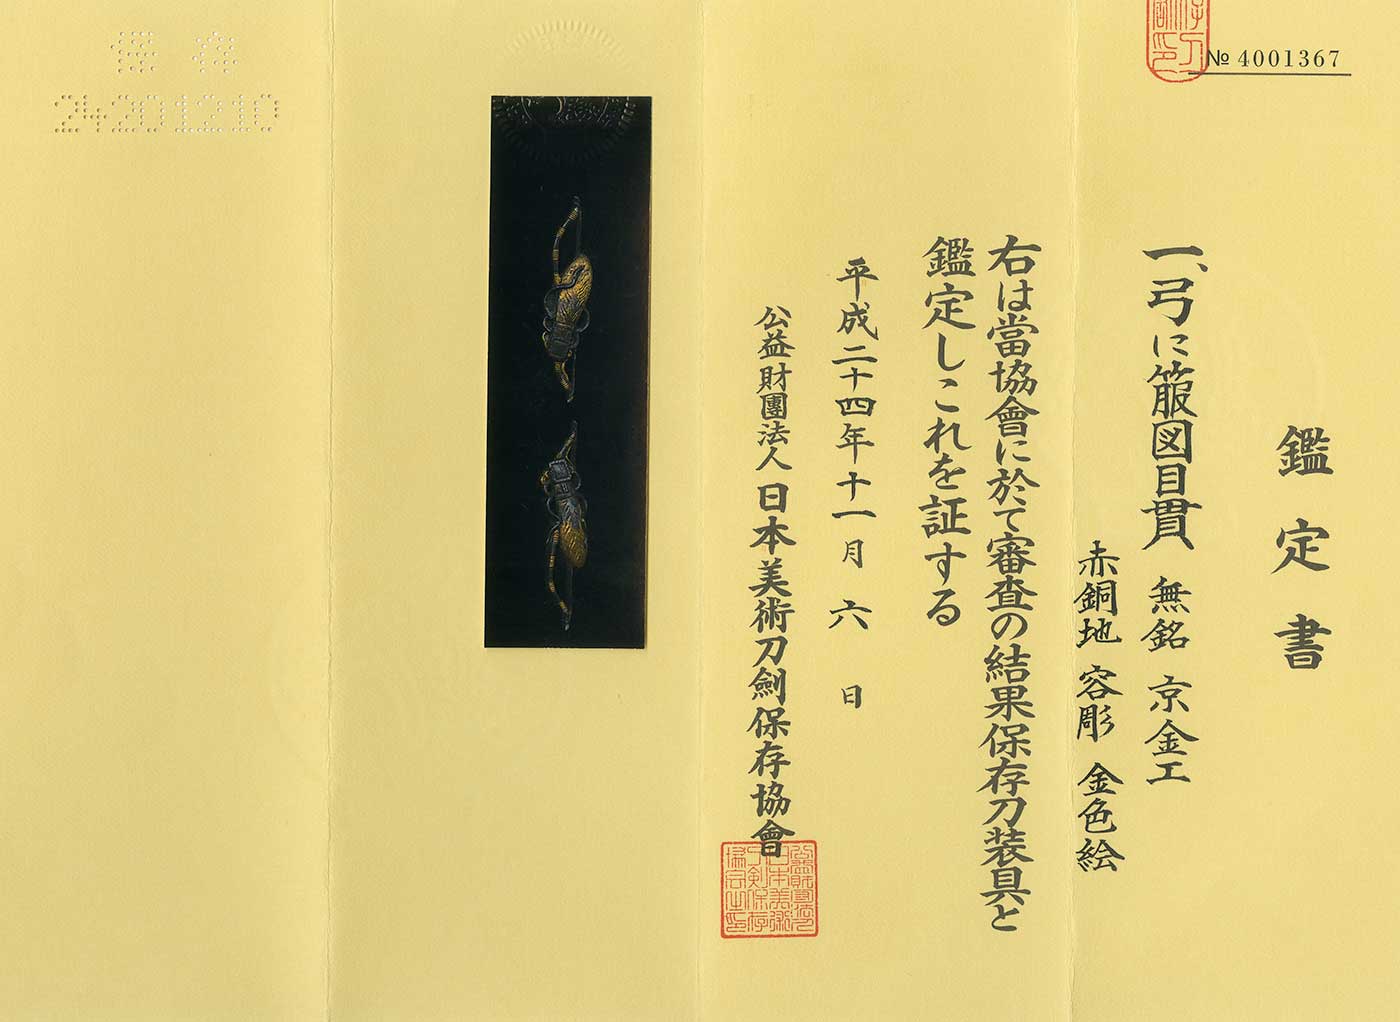 № 4001367
鑑定書
一、弓に箙図目貫 無銘 京金工
赤銅地 容彫 金色絵
右は當協會に於て審査の結果保存刀装具と
鑑定しこれを証する
平成二十四年十一月六日
公益財團法人 日本美術刀劍保存協會
保存
24201210